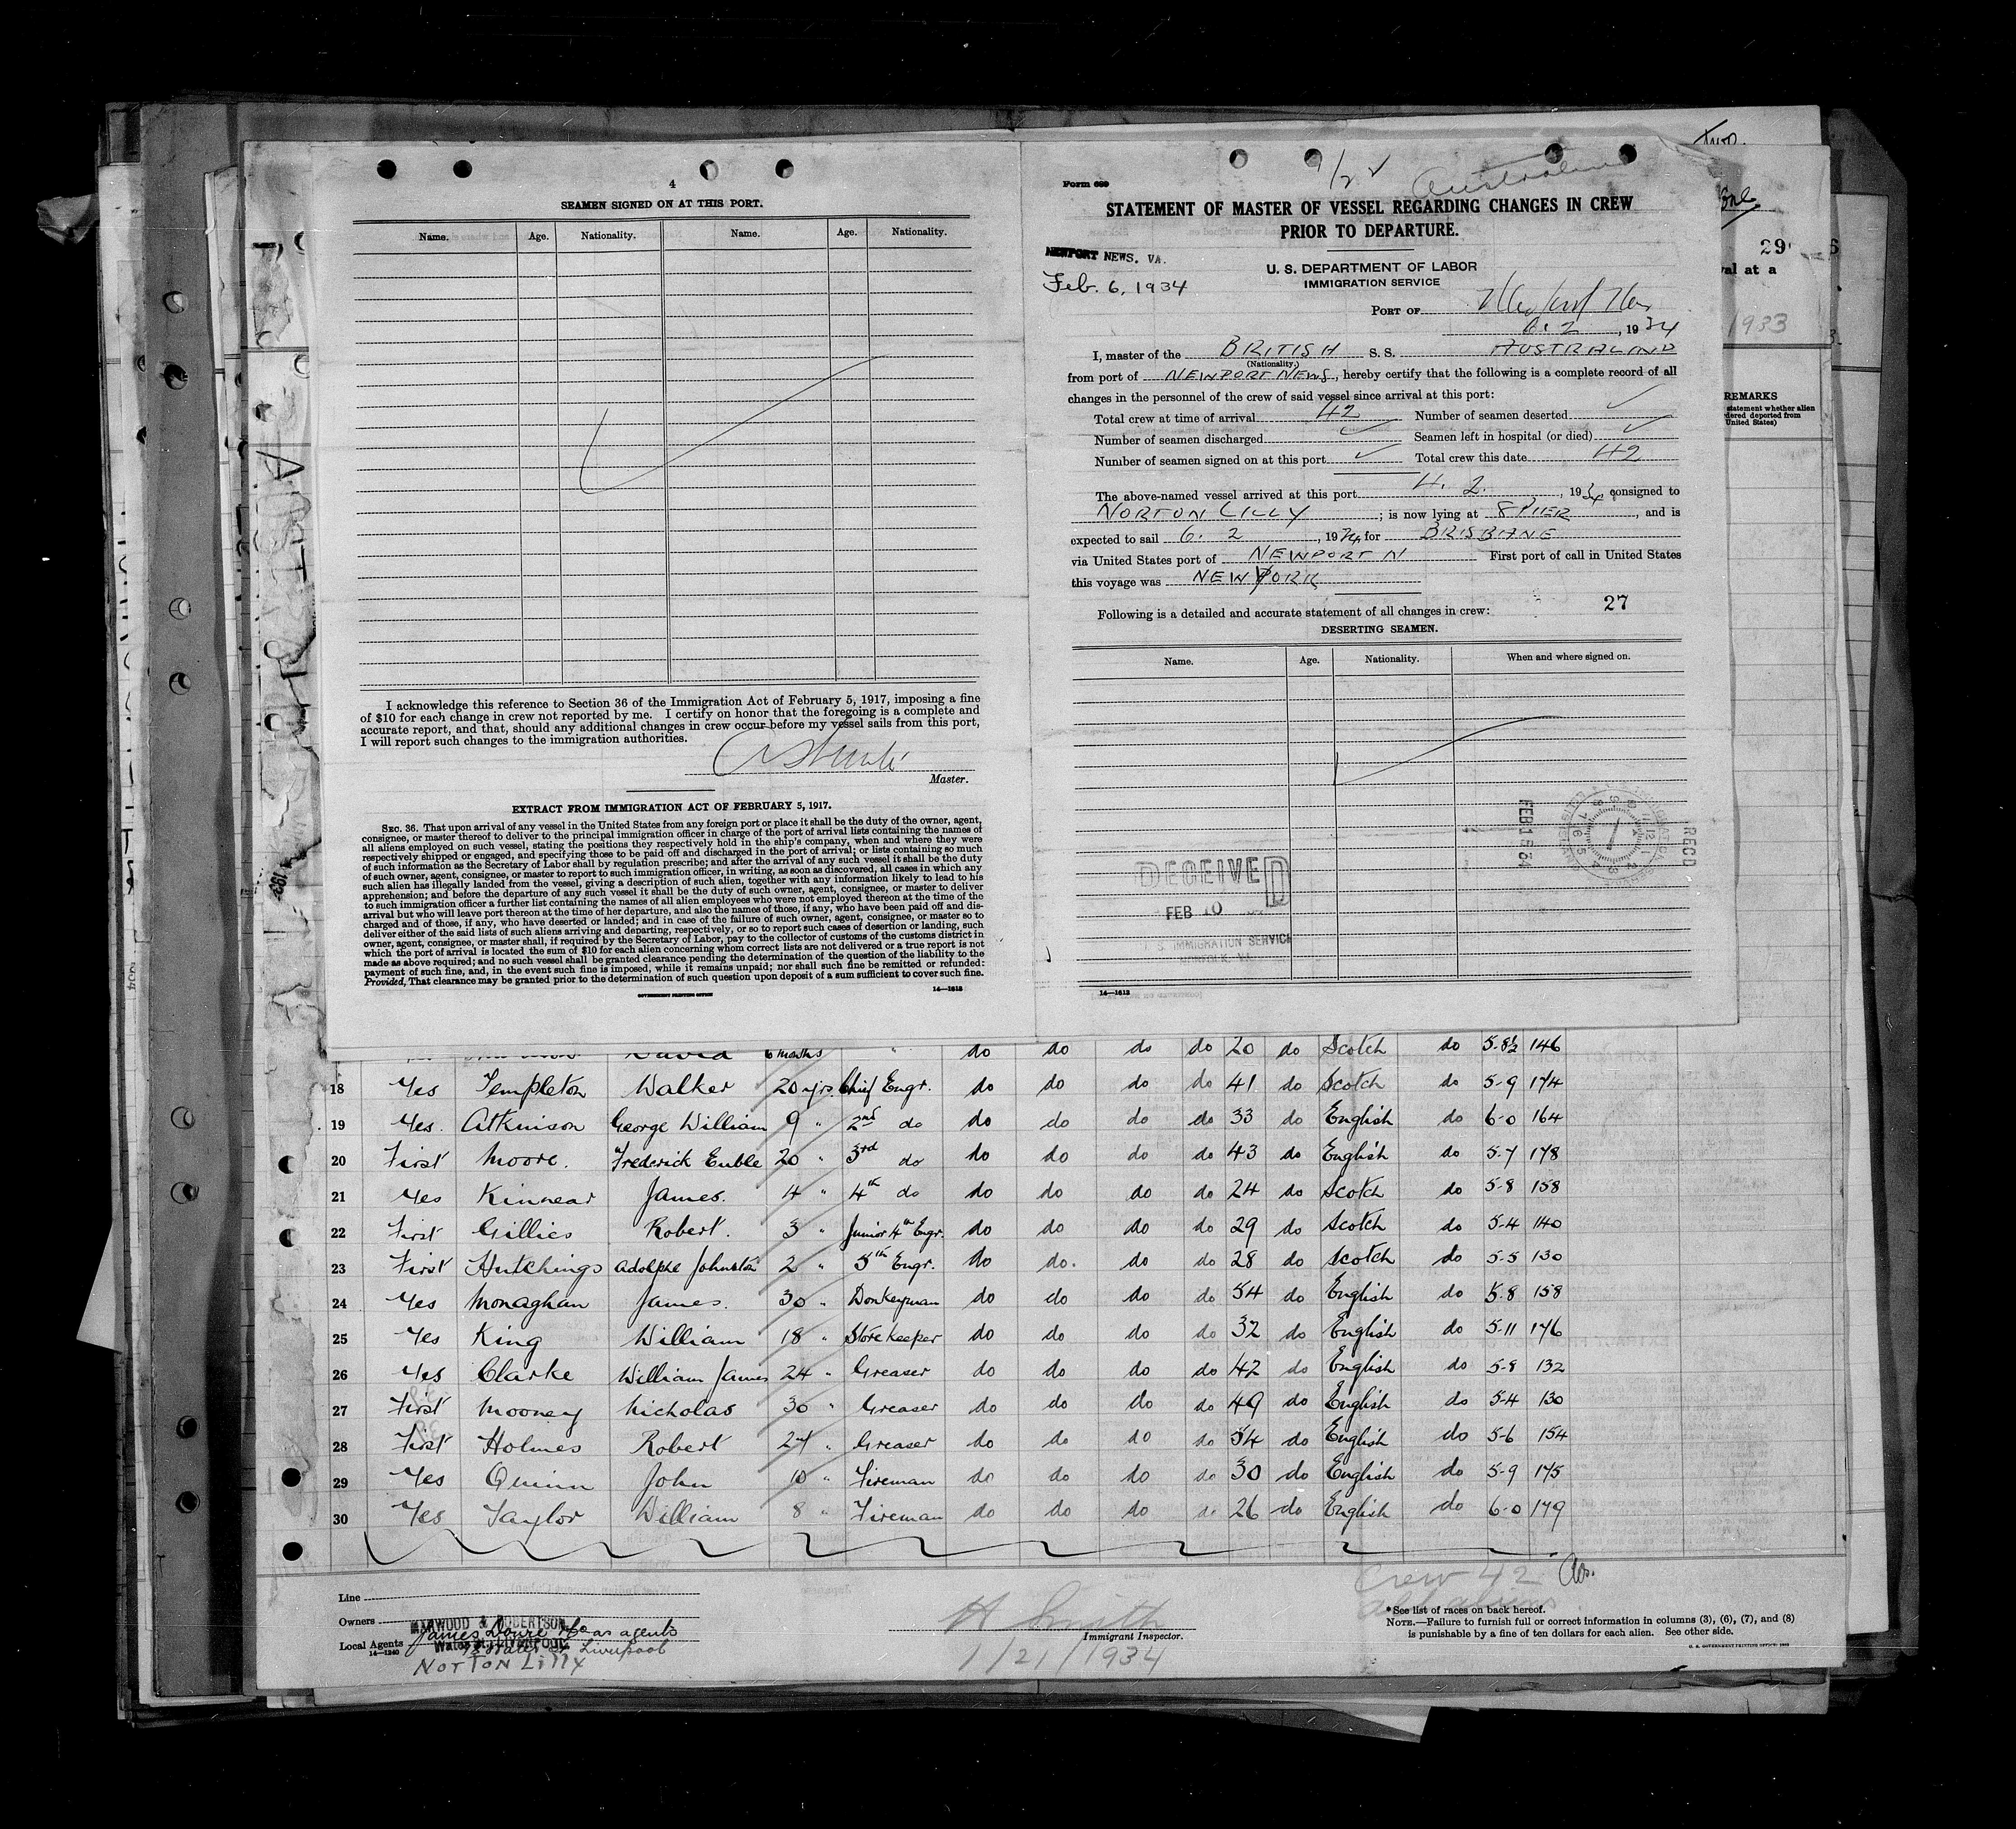 4
SEAMEN SIGNED ON AT THIS PORT.
Name. Age. Nationality. Name. Age. Nationality.
I acknowledge this reference to Section 36 of the Immigration Act of February 5, 1917, imposing a fine
of $10 for each change in crew not reported by me. I certify on honor that the foregoing is a complete and
accurate report, and that, should any additional changes in crew occur before my vessel sails from this port,
I will report such changes to the immigration authorities.
Master.
EXTRACT FROM IMMIGRATION ACT OF FEBRUARY 5, 1917.
SEC. 36. That upon arrival of any vessel in the United States from any foreign port or place it shall be the duty of the owner, agent,
consignee, or master thereof to deliver to the principal immigration officer in charge of the port of arrival lists containing the names of
all aliens employed on such vessel, stating the positions they respectively hold in the ship's company, when and where they were
respectively shipped or engaged, and specifying those to be paid off and discharged in the port of arrival; or lists containing so much
of such information as the Secretary of Labor shall by regulation prescribe; and after the arrival of any such vessel it shall be the duty
of such owner, agent, consignee, or master to report to such immigration officer, in writing, as soon as discovered, all cases in which any
such alien has illegally landed from the vessel, giving a description of such alien, together with any information likely to lead to his
apprehension; and before the departure of any such vessel it shall be the duty of such owner, agent, consignee, or master to deliver
to such immigration officer a further list containing the names of all alien employees who were not employed thereon at the time of the
arrival but who will leave port thereon at the time of her departure, and also the names of those, if any, who have been paid off and dis-
charged and of those, if any, who have deserted or landed; and in case of the failure of such owner, agent, consignee, or master so to
deliver either of the said lists of such aliens arriving and departing, respectively, or so to report such cases of desertion or landing, such
owner, agent, consignee, or master, shall, if required by the Secretary of Labor, pay to the collector of customs of the customs district in
which the port of arrival is located the sum of $10 for each alien concerning whom correct lists are not delivered or a true report is not
made as above required; and no such vessel shall be granted clearance pending the determination of the question of the liability to the
payment of such fine, and, in the event such fine is imposed, while it remains unpaid; nor shall such fine be remitted or refunded:
Provided, That clearance may be granted prior to the determination of such question upon deposit of a sum sufficient to cover such fine.
GOVERNMENT PRINTING OFFICE 14—1612
Form 689
Australind
STATEMENT OF MASTER OF VESSEL REGARDING CHANGES IN CREW
PRIOR TO DEPARTURE.
NEWPORT NEWS, VA.
Feb. 6, 1934
U. S. DEPARTMENT OF LABOR
IMMIGRATION SERVICE
PORT OF Newport News
6. 2, 1934
I, master of the BRITISH S. S. AUSTRALIND
(Nationality.)
from port of NEWPORT NEWS, hereby certify that the following is a complete record of all
changes in the personnel of the crew of said vessel since arrival at this port:
Total crew at time of arrival 42 Number of seamen deserted
Number of seamen discharged Seamen left in hospital (or died)
Number of seamen signed on at this port Total crew this date 42
The above-named vessel arrived at this port 4. 2., 1934, consigned to
NORTON LILLY; is now lying at 8 PIER, and is
expected to sail 6. 2, 1934, for BRISBANE
via United States port of NEWPORT N First port of call in United States
this voyage was NEW YORK
Following is a detailed and accurate statement of all changes in crew: 27
DESERTING SEAMEN.
Name. Age. Nationality. When and where signed on.
FEB 15 34
REC'D
RECEIVED
FEB 10
U. S. IMMIGRATION SERVICE
14—1612
29
val at a
1933
REMARKS
statement whether alien
dered deported from
United States)
David 6 months " do do do do 20 do Scotch do 5-8½ 146
18 Yes Templeton Walker 20 yrs. Chief Engr. do do do do 41 do Scotch do 5-9 174
19 Yes. Atkinson George William 9 " 2nd do do do do do 33 do English do 6-0 164
20 First Moore. Frederick Euble 20 " 3rd do do do do do 43 do English do 5-7 178
21 Yes Kinnear James. 4 " 4th do do do do do 24 do Scotch do 5-8 158
22 First Gillies Robert. 3 " Junior 4th Engr. do do do do 29 do Scotch do 5-4 140
23 First Hutchings Adolphe Johnston 2 " 5th Engr. do do. do do 28 do Scotch do 5-5 130
24 Yes Monaghan James. 30 " Donkeyman do do do do 54 do English do 5-8 158
25 Yes King William 18 " Storekeeper do do do do 32 do English do 5-11 176
26 Yes Clarke William James 24 " Greaser do do do do 42 do English do 5-8 132
27 First Mooney Nicholas 30 " Greaser do do do do 49 do English do 5-4 130
28 First Holmes Robert 27 " Greaser do do do do 54 do English do 5-6 154
29 Yes Quinn John 10 " Fireman do do do do 30 do English do 5-9 175
30 Yes Taylor William 8 " Fireman do do do do 26 do English do 6-0 179
Crew 42
all aliens
Line
Owners HARWOOD & ROBERTSON
James Dowie & Co as agents
Local Agents Water St. LIVERPOOL
14—1240
NORTON LILLY
H Smith
Immigrant Inspector.
1/21/1934
*See list of races on back hereof.
NOTE.—Failure to furnish full or correct information in columns (3), (6), (7), and (8)
is punishable by a fine of ten dollars for each alien. See other side.
U. S. GOVERNMENT PRINTING OFFICE